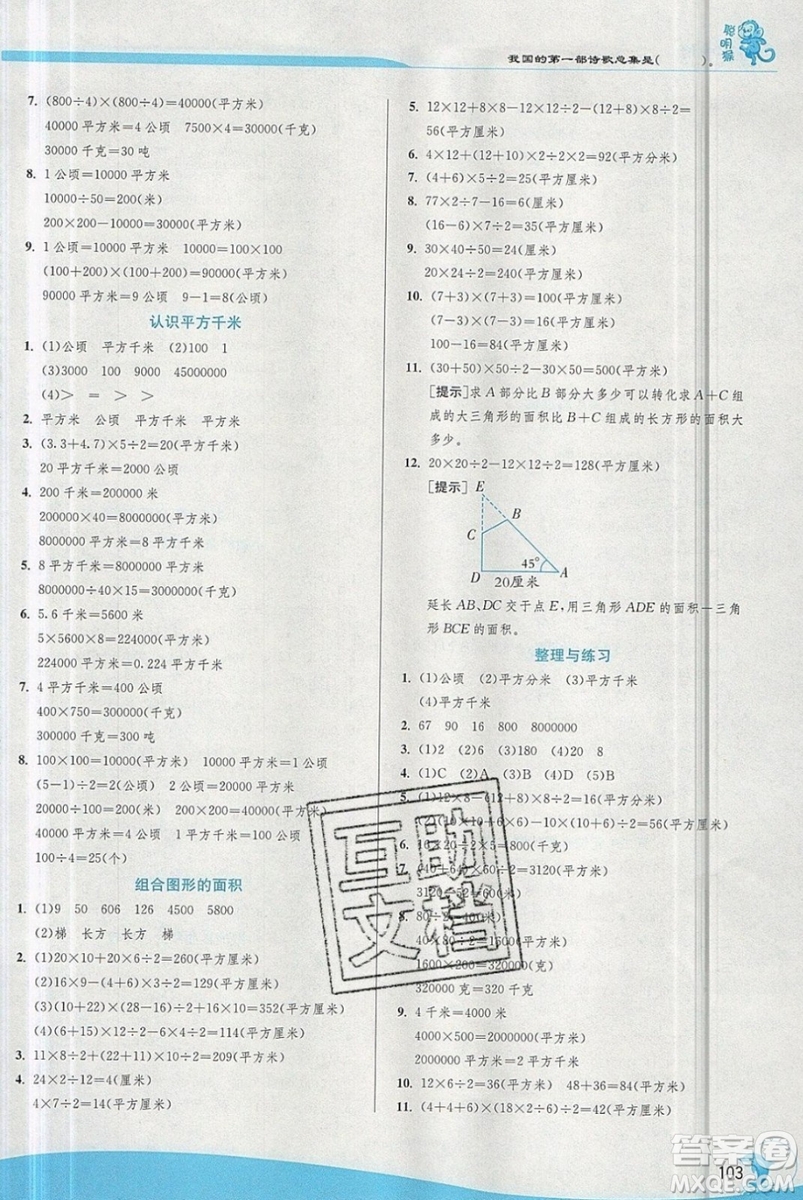 我国的第一部诗歌总集是(　　)。
聪明猴
7. (800÷4)×(800÷4)=40000(平方米)
40000 平方米=4 公顷 7500×4=30000(千克)
30000 千克=30 吨
8. 1 公顷=10000 平方米
10000÷50=200(米)
200×200-10000=30000(平方米)
9. 1 公顷=10000 平方米 10000=100×100
(100+200)×(100+200)=90000(平方米)
90000 平方米=9 公顷 9-1=8(公顷)
认识平方千米
1. (1)公顷 平方千米 (2)100 1
(3)3000 100 9000 45000000
(4)> = > >
2. 平方米 公顷 平方千米 平方米
3. (3.3+4.7)×5÷2=20(平方千米)
20 平方千米=2000 公顷
4. 200 千米=200000 米
200000×40=8000000(平方米)
8000000 平方米=8 平方千米
5. 8 平方千米=8000000 平方米
8000000÷40×15=3000000(千克)
6. 5.6 千米=5600 米
5×5600×8=224000(平方米)
224000 平方米=0.224 平方千米
7. 4 平方千米=400 公顷
400×750=300000(千克)
300000 千克=300 吨
8. 100×100=10000(平方米) 10000 平方米=1 公顷
(5-1)÷2=2(公顷) 2 公顷=20000(平方米)
20000÷50×2=200(米) 200×200=40000(平方米)
40000 平方米=4 公顷 1 平方千米=100 公顷
100÷4=25(个)
组合图形的面积
1. (1)9 50 606 126 4500 5800
(2)梯 长方 长方 梯
2. (1)20×10+20×12÷2=260(平方厘米)
(2)16×9-4×(16-8)÷2=128(平方厘米)
(3)(10+22)×(28-16)÷2+10×16=352(平方厘米)
(4)(6+15)×12÷2-6×4÷2=114(平方厘米)
3. 11×8÷2+(11+5)×6÷2=92(平方厘米)
4. 24×2÷12=4(厘米)
4×7÷2=14(平方厘米)
5. 12×12+8×8-12×12÷2-(12+8)×8÷2=
56(平方厘米)
6. 4×12+(12+10)×2÷2×2=92(平方分米)
7. (4+6)×5÷2=25(平方厘米)
8. 77×2÷7-16=6(厘米)
(16-6)×7÷2=35(平方厘米)
9. 30×40÷50=24(厘米)
20×24÷2=240(平方厘米)
10. (7+3)×(7+3)=100(平方厘米)
(7-3)×(7-3)=16(平方厘米)
100-16=84(平方厘米)
11. (30+50)×50÷2-30×50=500(平方厘米)
[提示]求 A 部分比 B 部分大多少可以转化求 A+C 组
成的大三角形的面积比 B+C 组成的长方形的面积大
多少。
12. 20×20÷2-12×12÷2=128(平方厘米)
[提示]
E
B
C
45°
D
A
20厘米
延长 AB、DC 交于点 E,用三角形 ADE 的面积-三角
形 BCE 的面积。
整理与练习
1. (1)公顷 (2)平方分米 (3)平方千米
(4)平方千米
2. 67 90 16 800 8000000
3. (1)2 (2)6 (3)180 (4)20 8
4. (1)C (2)A (3)B (4)D
5. (1)12×8-(12+8)×6÷2=36(平方厘米)
(2)(10+6)×10÷2-(10+6)×(10-7)÷2=56(平方厘米)
3120÷
9. 4 千米=4000 米
4000×500=2000000(平方米)
2000000 平方米=2 平方千米
10. 12×6÷2=36(平方米) 48+36=84(平方米)
11. (4+4+6)×(10-4)÷2=42(平方厘米)
1600×200=320000(千克)
320000 千克=320 千克
互助文档
答案圈
MXQE.COM
103